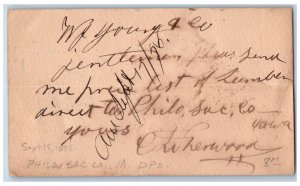 W. Young & Co
Gentlemen pleas send
me price list of Lumber
direct to Philo, Sac, Co
Iowa
yours
C Wherwood
Ans Sept 17/75
Sept 15, 1875
PHILO SAC CO, IA. DPO.
8 00